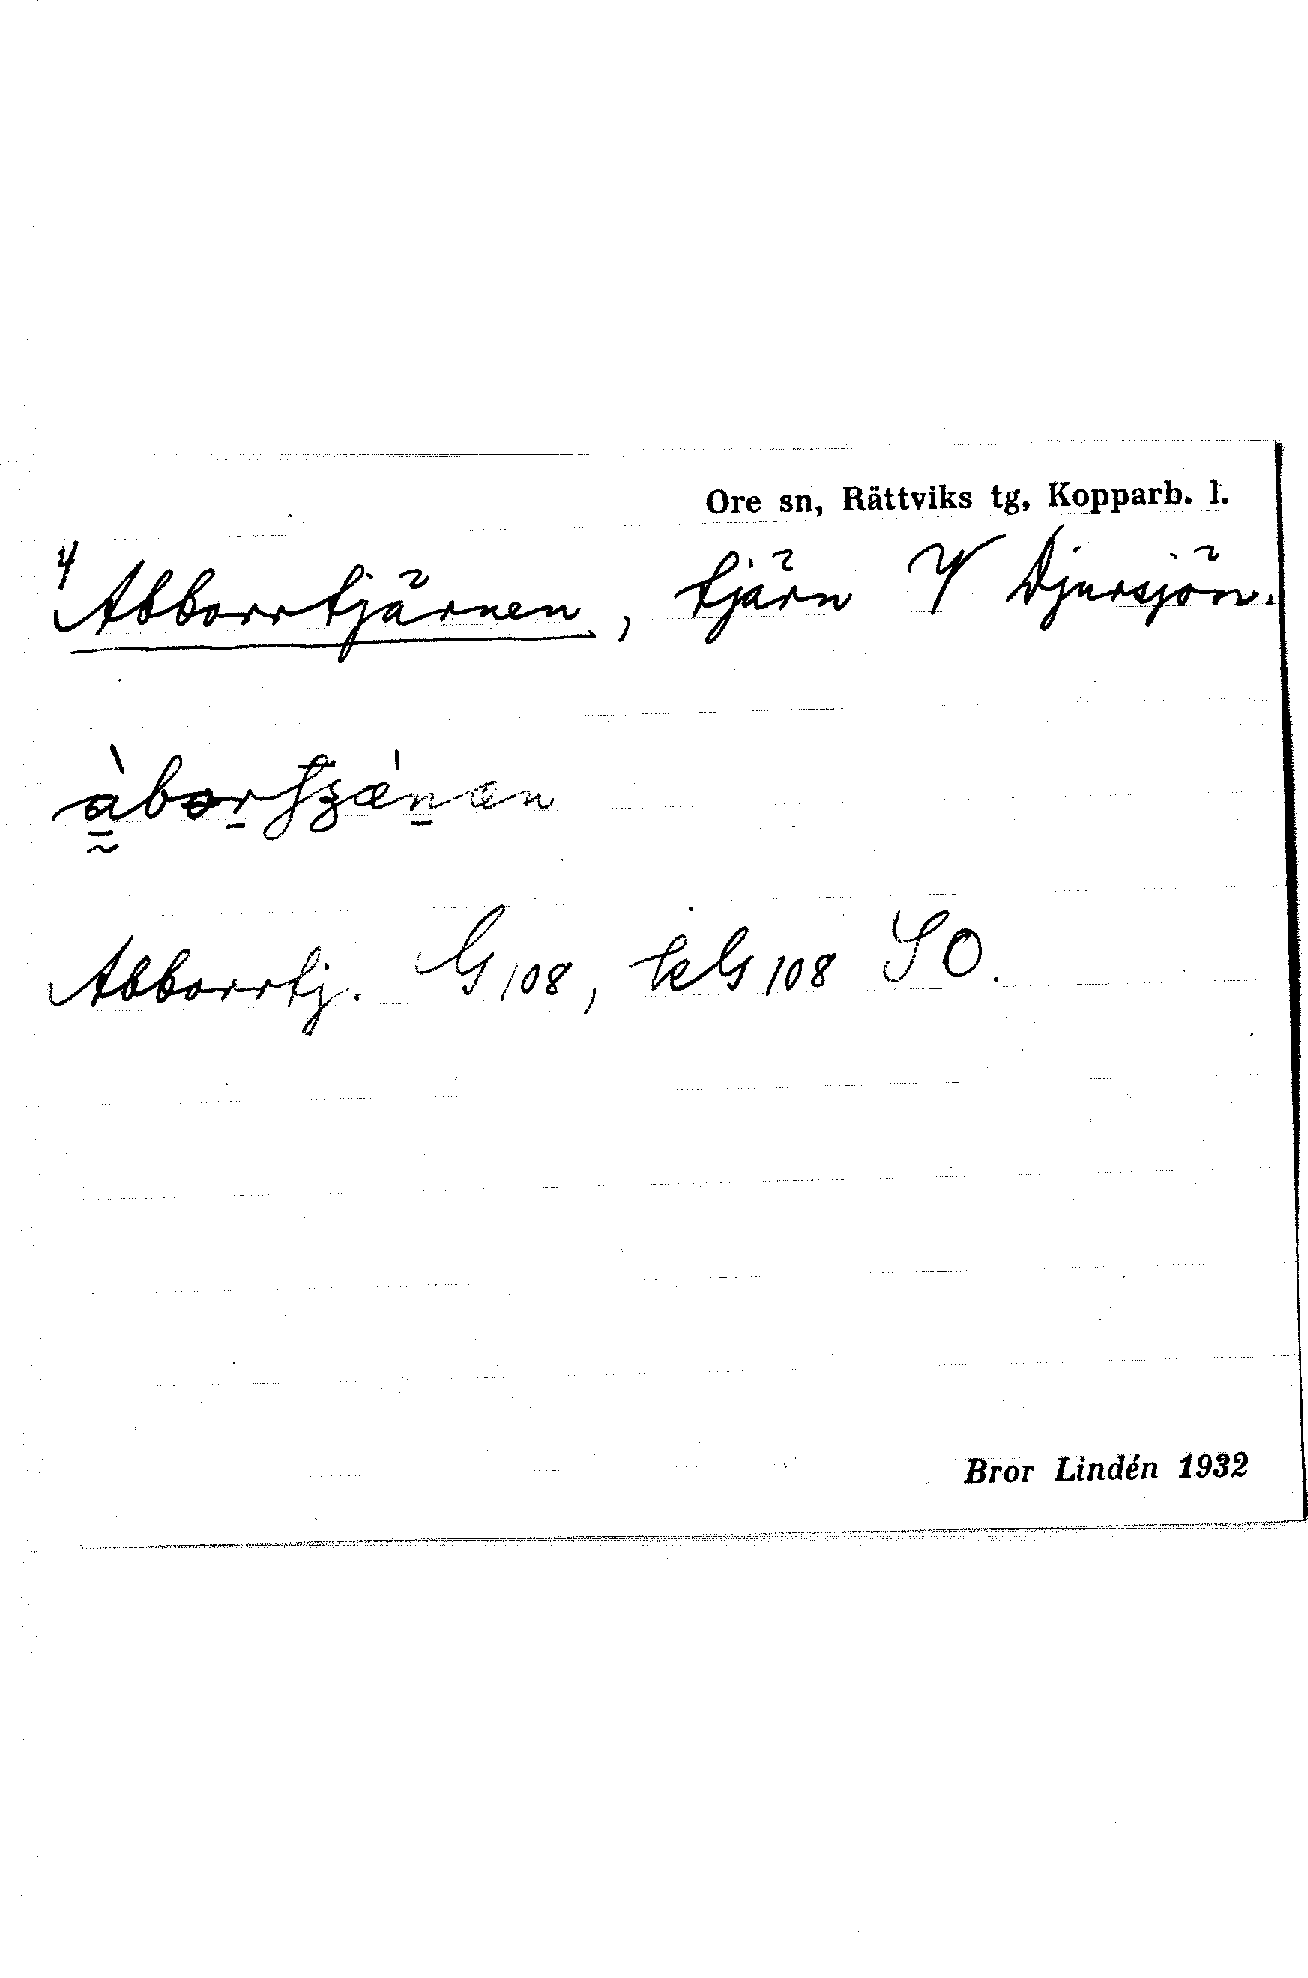 Ore sn, Rättviks tg, Kopparb. l.
Abborrtjärnen, tjärn V Djursjön.
Abborrtj. G 108, kG 108 SO.
Bror Lindén 1932